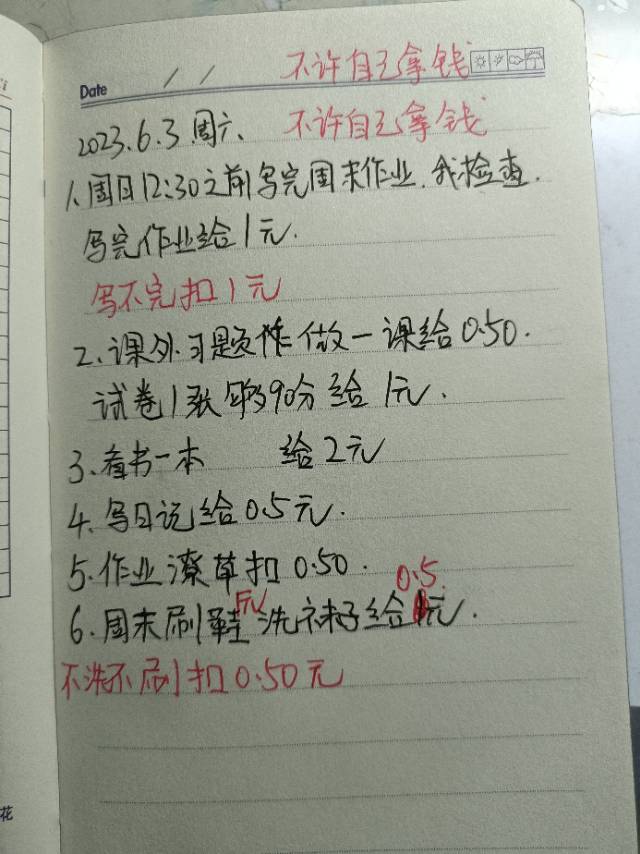 Date / / 不许自己拿钱
2023.6.3.周六、 不许自己拿钱
1.周日12:30之前写完周末作业.我检查.
写完作业给1元.
写不完扣1元
2.课外习题 做一课给0.50.
试卷1张够90分给1元.
3.看书一本 给2元
4.写日记给0.5元.
5.作业潦草扣0.50.
0.5.
6.周末刷鞋 洗袜子给元.
不洗不刷扣0.50元
花